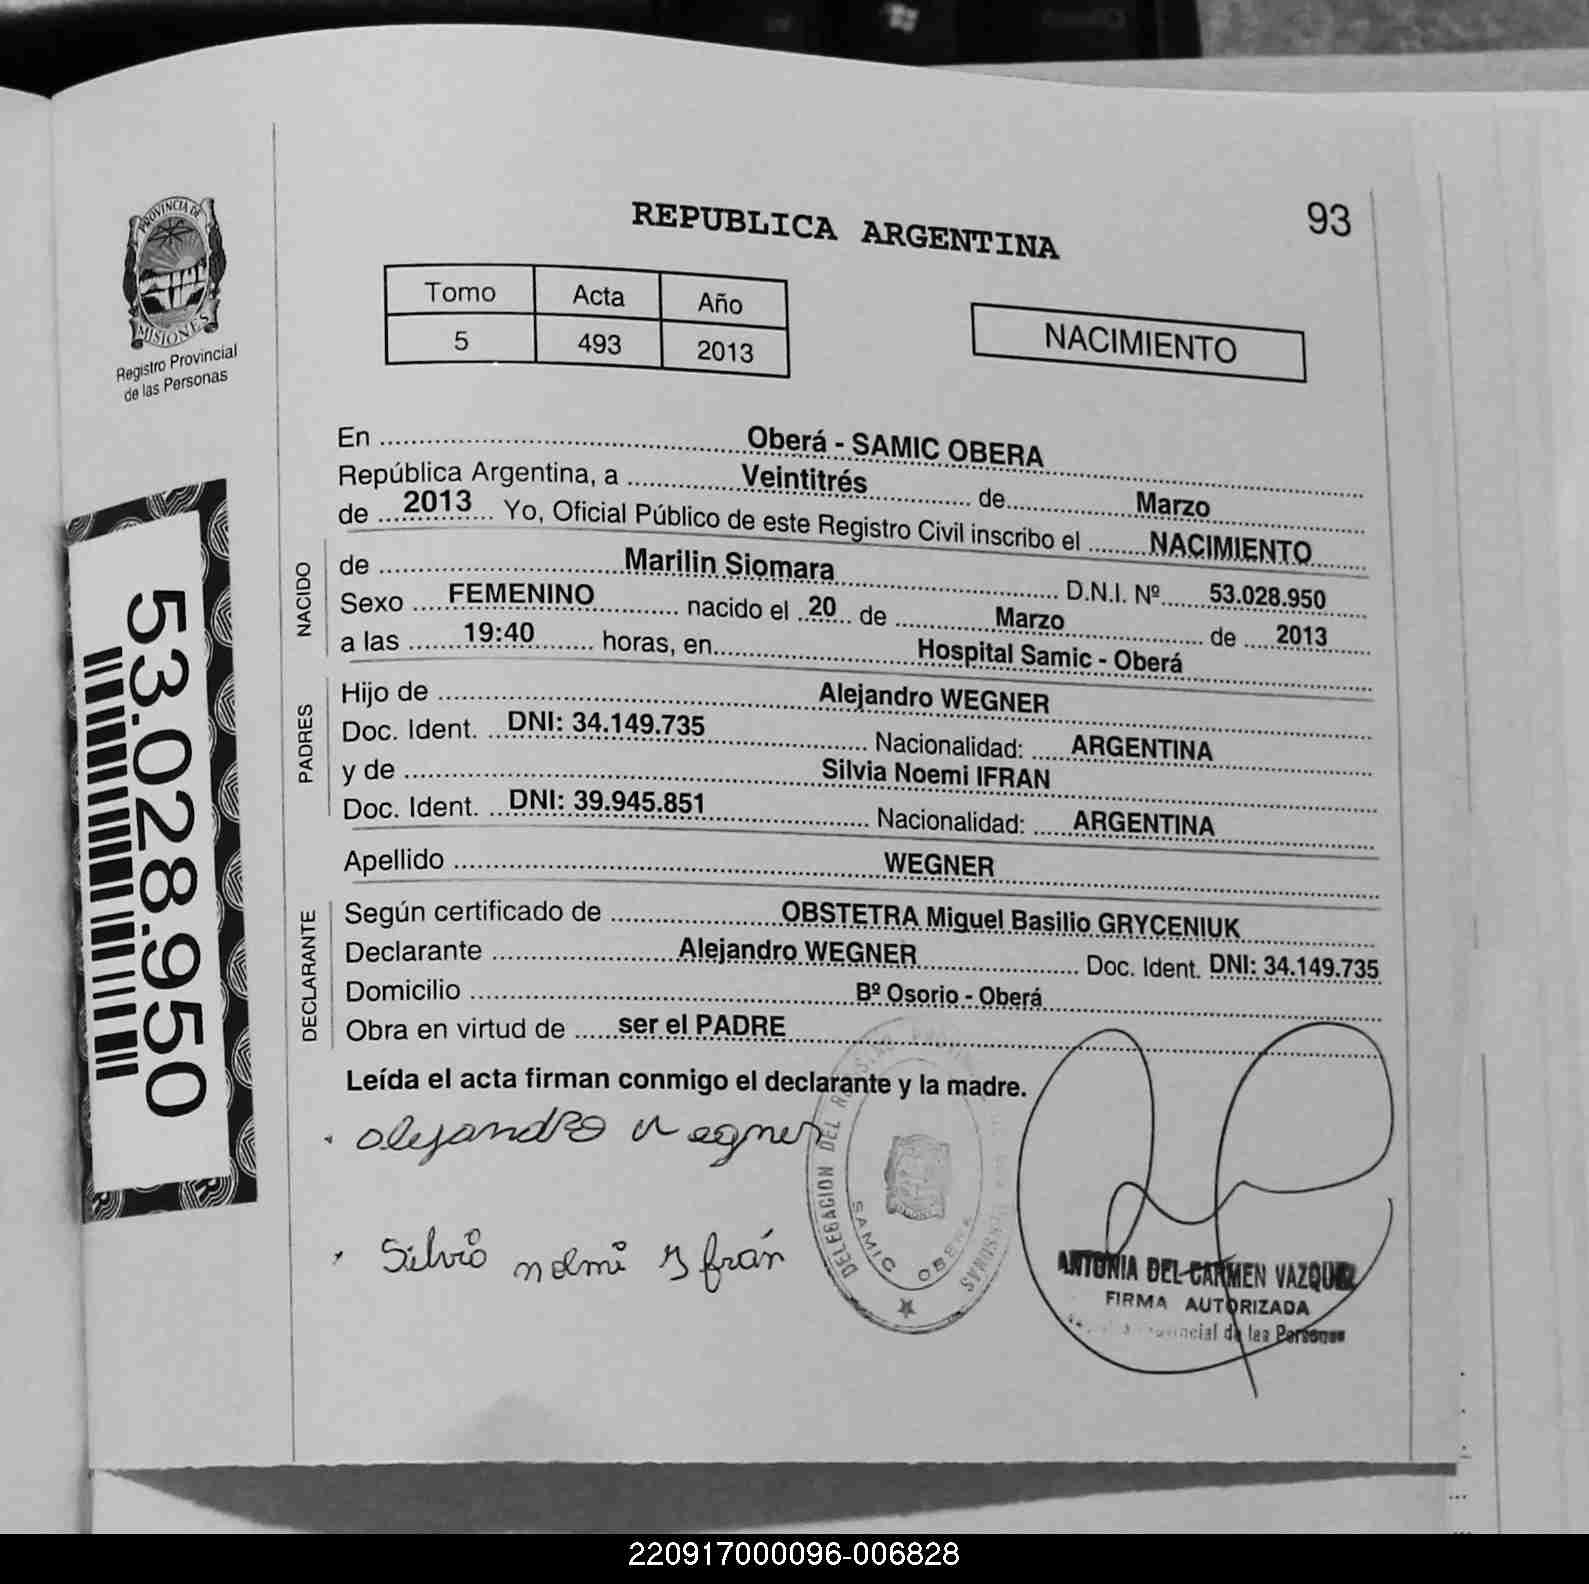 PROVINCIA DE
MISIONES
Registro Provincial
de las Personas
53.028.950
REPUBLICA ARGENTINA
93
Tomo Acta Año
5 493 2013
NACIMIENTO
En Oberá - SAMIC OBERA
República Argentina, a Veintitrés de Marzo
de 2013 Yo, Oficial Público de este Registro Civil inscribo el NACIMIENTO
NACIDO
de Marilin Siomara D.N.I. Nº 53.028.950
Sexo FEMENINO nacido el 20 de Marzo de 2013
a las 19:40 horas, en Hospital Samic - Oberá
PADRES
Hijo de Alejandro WEGNER
Doc. Ident. DNI: 34.149.735 Nacionalidad: ARGENTINA
y de Silvia Noemi IFRAN
Doc. Ident. DNI: 39.945.851 Nacionalidad: ARGENTINA
Apellido WEGNER
DECLARANTE
Según certificado de OBSTETRA Miguel Basilio GRYCENIUK
Declarante Alejandro WEGNER Doc. Ident. DNI: 34.149.735
Domicilio Bº Osorio - Oberá
Obra en virtud de ser el PADRE
Leída el acta firman conmigo el declarante y la madre.
alejandro Wegner
Silvia noemi Yfrán
DELEGACION DEL
SAMIC OBERA
ANTONIA DEL CARMEN VAZQUEZ
FIRMA AUTORIZADA
Provincial de las Personas
220917000096-006828